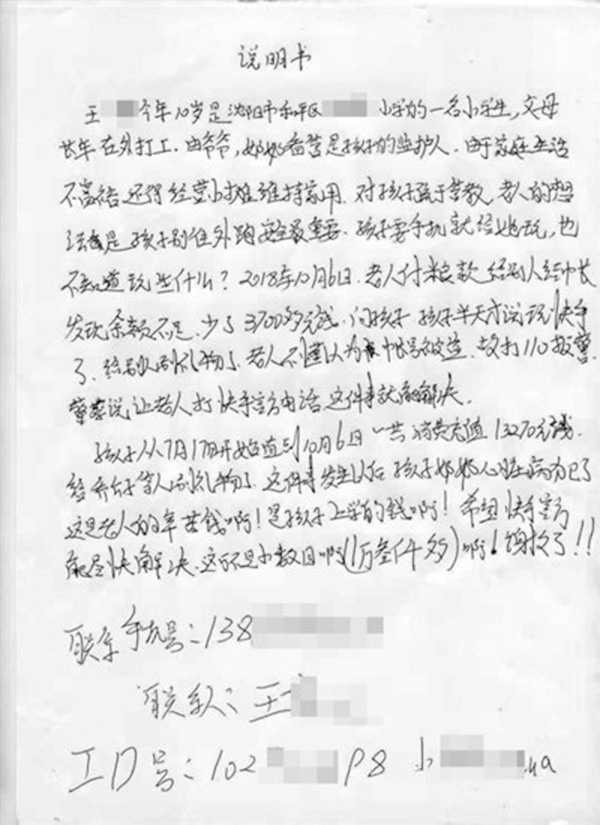 说明书
王 今年10岁是沈阳市和平区 小学的一名小学生,父母
长年在外打工.由爷爷,奶奶看管是孩子的监护人.由于家庭生活
不富裕.还得经营小摊维持家用.对孩子疏于管教.老人的想
法就是孩子别往外跑安全最重要.孩子要手机就给她玩,也
不知道玩些什么?2018年10月6日.老人付米款给别人
发现余额不足.少了3700多元钱.问孩子 孩子半天才说玩快手
了.给别人刷礼物了.老人不懂认为帐号被盗.故打110报警.
警察说让老人打快手官方电话.这件事就能解决.
孩子从7月17日开始直到10月6日一共消费充值13270元钱.
给乔 等人刷礼物了.这件事发生以后孩子奶奶心脏病犯了
这是老人的辛苦钱啊!是孩子上学的钱啊!希望快手官方
能尽快解决.这可不是小数目啊(1万叁仟多)啊!谢谢了!!
联系手机号:138
联系人:王
ID号:102 P8 小 .na